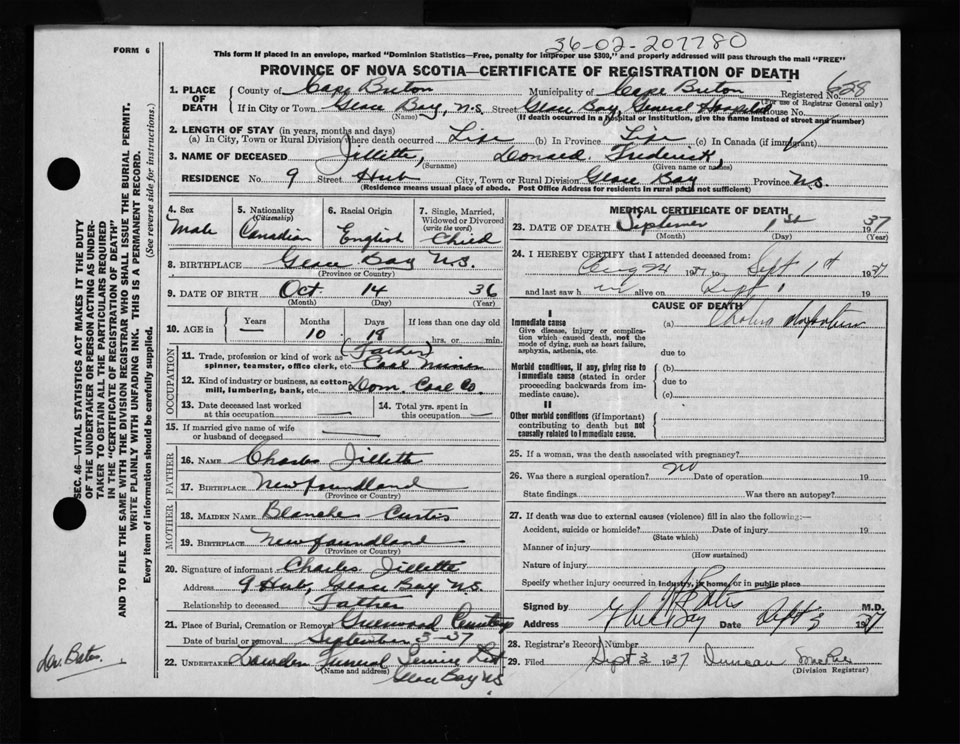 36-02-207780
FORM 6
This form if placed in an envelope, marked "Dominion Statistics—Free, penalty for improper use $300," and properly addressed will pass through the mail "FREE"
PROVINCE OF NOVA SCOTIA—CERTIFICATE OF REGISTRATION OF DEATH
1. PLACE OF DEATH
County of Cape Breton Municipality of Cape Breton Registered No. 628
(For use of Registrar General only)
If in City or Town Glace Bay, N.S. Street Glace Bay General Hospital House No.
(Name) (If death occurred in a hospital or institution, give the name instead of street and number)
2. LENGTH OF STAY (in years, months and days)
(a) In City, Town or Rural Division where death occurred Life (b) In Province Life (c) In Canada (if immigrant)
3. NAME OF DECEASED Jillette, Donald Frederick,
(Surname) (Given name or names)
RESIDENCE No. 9 Street Hub City, Town or Rural Division Glace Bay Province N.S.
(Residence means usual place of abode. Post Office Address for residents in rural parts not sufficient)
4. Sex Male
5. Nationality (Citizenship) Canadian
6. Racial Origin English
7. Single, Married, Widowed or Divorced (write the word) Child
8. BIRTHPLACE Glace Bay N.S.
(Province or Country)
9. DATE OF BIRTH Oct. 14 36
(Month) (Day) (Year)
10. AGE in Years Months Days If less than one day old
— 10 18 hrs. or min.
OCCUPATION
11. Trade, profession or kind of work as spinner, teamster, office clerk, etc. (Father) Coal Miner
12. Kind of industry or business, as cotton-mill, lumbering, bank, etc. Dom. Coal Co.
13. Date deceased last worked at this occupation —
14. Total yrs. spent in this occupation —
15. If married give name of wife or husband of deceased —
FATHER
16. NAME Charles Jillette
17. BIRTHPLACE Newfoundland
(Province or Country)
MOTHER
18. MAIDEN NAME Blanche Curtis
19. BIRTHPLACE Newfoundland
(Province or Country)
20. Signature of informant Charles Jillette
Address 9 Hub, Glace Bay N.S.
Relationship to deceased Father
21. Place of Burial, Cremation or Removal Greenwood Cemetery
Date of burial or removal September 3-37
22. UNDERTAKER Funeral Service Ltd
(Name and address)
Glace Bay N.S.
MEDICAL CERTIFICATE OF DEATH
23. DATE OF DEATH September 1st 1937
(Month) (Day) (Year)
24. I HEREBY CERTIFY that I attended deceased from:
Aug 24 1937 to Sept 1st 1937
and last saw h im alive on Sept 1 19
CAUSE OF DEATH
I
Immediate cause
Give disease, injury or complication which caused death, not the mode of dying, such as heart failure, asphyxia, asthenia, etc.
(a) Cholera Infantum
due to
Morbid conditions, if any, giving rise to immediate cause (stated in order proceeding backwards from immediate cause).
(b)
due to
(c)
II
Other morbid conditions (if important) contributing to death but not causally related to immediate cause.
25. If a woman, was the death associated with pregnancy?
26. Was there a surgical operation? no Date of operation 19
State findings Was there an autopsy?
27. If death was due to external causes (violence) fill in also the following:—
Accident, suicide or homicide? Date of injury 19
(State which)
Manner of injury
(How sustained)
Nature of injury
Specify whether injury occurred in industry, in home, or in public place
Signed by M.D.
Address Glace Bay Date Sept 3 1937
28. Registrar's Record Number
29. Filed Sept 3 1937 Duncan
(Division Registrar)
SEC. 46—VITAL STATISTICS ACT MAKES IT THE DUTY
OF THE UNDERTAKER OR PERSON ACTING AS UNDER-
TAKER TO OBTAIN ALL THE PARTICULARS REQUIRED
IN THE "CERTIFICATE OF REGISTRATION OF DEATH"
AND TO FILE THE SAME WITH THE DIVISION REGISTRAR WHO SHALL ISSUE THE BURIAL PERMIT.
WRITE PLAINLY WITH UNFADING INK. THIS IS A PERMANENT RECORD.
Every item of information should be carefully supplied. (See reverse side for instructions.)